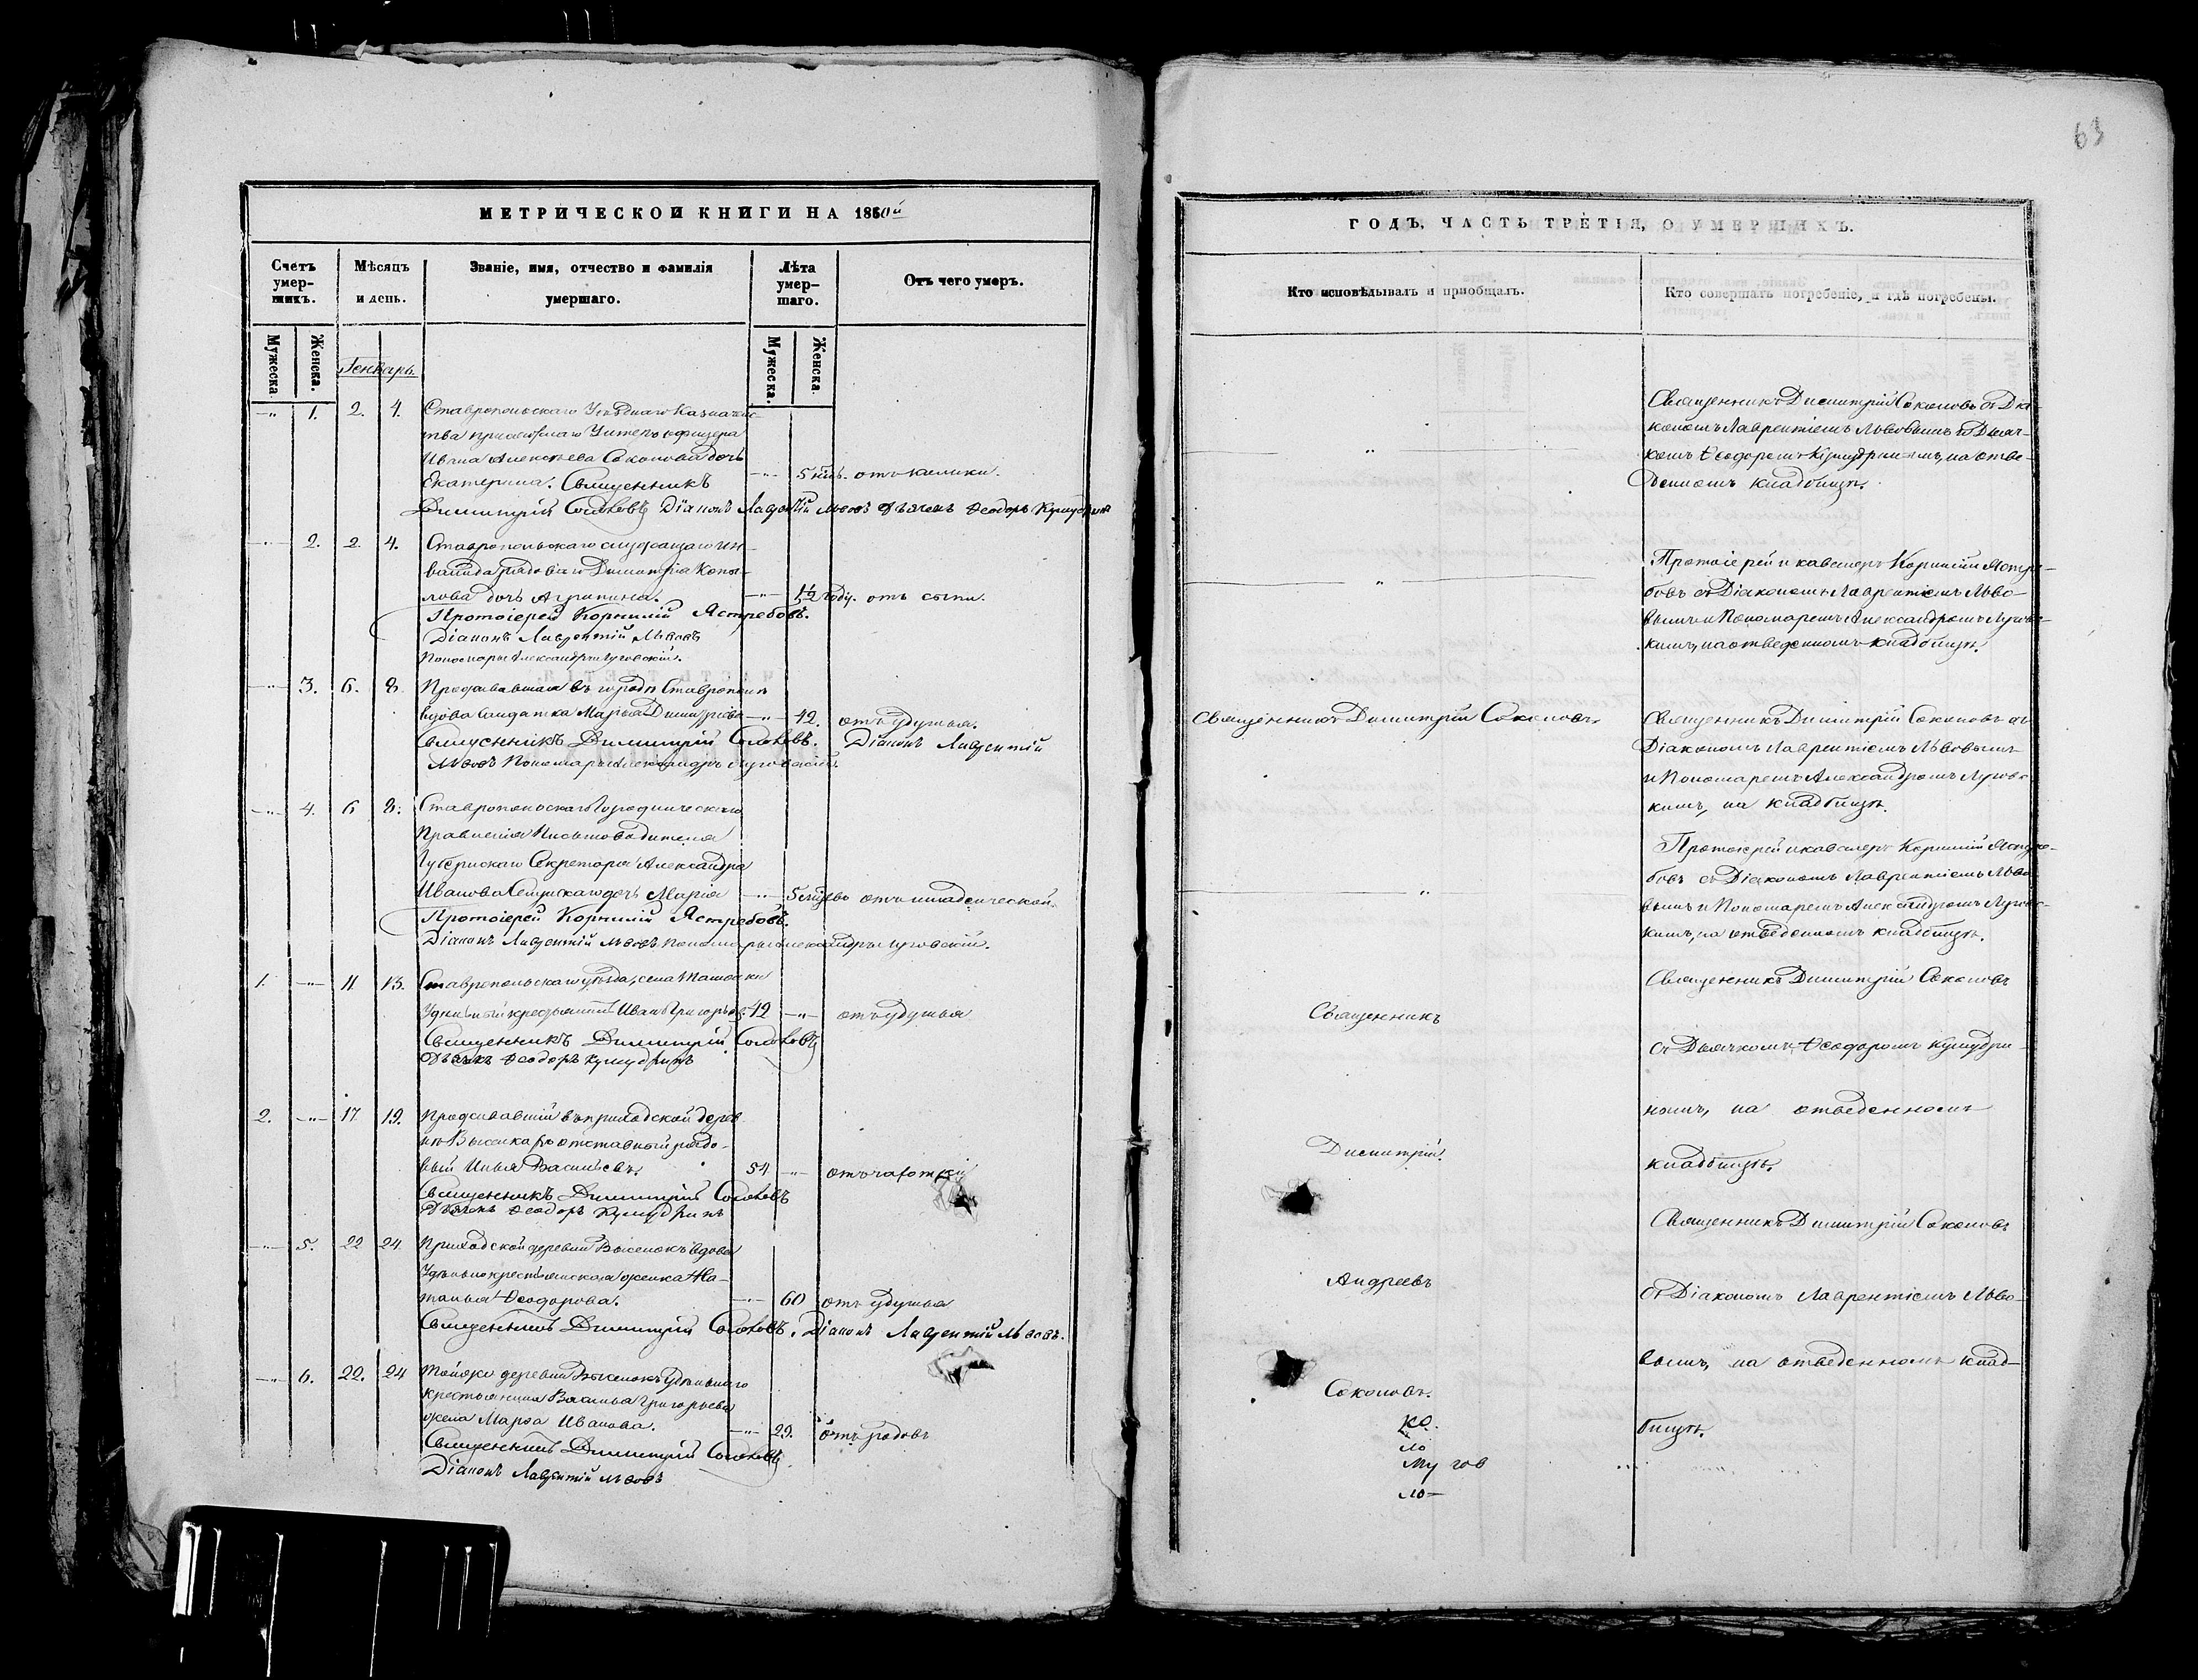 63
МЕТРИЧЕСКОЙ КНИГИ НА 1860й
Счетъ умер-шихъ.
Мѣсяцъ и день.
Званіе, имя, отчество и фамилія умершаго.
Лѣта умер-шаго.
Отъ чего умеръ.
Мужеска.
Женска.
Мужеска.
Женска.
Генварь.
-"- 1. 2. 4. Ставропольскаго Уѣзднаго Казначей-
ства Унтеръ офицера
Ивана Алексѣева Соколова дочь
Екатерина. -"- 5 отъ колики.
Священникъ
Димитрій Соколовъ Діаконъ Лаврентій Львовъ Дьячекъ Ѳеодоръ
-"- 2. 2. 4. Ставропольскаго служащаго ин-
валида рядоваго Димитрія Копы-
лова дочь Агрипина. -"- 1½ году. отъ сыпи.
Протоіерей Корнилій Ястребовъ.
Діаконъ Лаврентій Львовъ
Пономарь Александръ Луговскій.
-"- 3. 6. 8. Проживавшая въ городѣ Ставрополѣ
вдова Солдатка Марья Димитріева -"- 42. отъ удушья.
Священникъ Димитрій Соколовъ. Діаконъ Лаврентій
Львовъ Пономарь Александръ Луговскій.
-"- 4. 6 8. Ставропольскаго Городническаго
Правленія Письмоводителя
Губернскаго Секретаря Александра
Иванова дочь Марія -"- 5 отъ младенческой.
Протоіерей Корнилій Ястребовъ.
Діаконъ Лаврентій Львовъ Пономарь Александръ Луговскій.
1. -"- 11 13. Ставропольскаго уѣзда, села
Удѣльный крестьянинъ Иванъ Григорьевъ. 42 -"- отъ удушья
Священникъ Димитрій Соколовъ
Дьячекъ Ѳеодоръ
2. -"- 17 19. Проживавшій въ приходской дерев-
нѣ отставный рядо-
вый Илья Васильевъ. 54 -"- отъ чахотки
Священникъ Димитрій Соколовъ
Дьячекъ Ѳеодоръ
-"- 5. 22 24 Приходской деревни Выселокъ вдова
Удѣльная крестьянская женка На-
талья Ѳеодорова. -"- 60 отъ удушья
Священникъ Димитрій Соколовъ. Діаконъ Лаврентій Львовъ.
-"- 6. 22. 24 Тойже деревни Выселокъ Удѣльнаго
крестьянина Василья Григорьева
жена Марѳа Иванова. -"- 29. отъ родовъ
Священникъ Димитрій Соколовъ
Діаконъ Лаврентій Львовъ
ГОДЪ, ЧАСТЬ ТРЕТІЯ, О УМЕРШИХЪ.
Кто исповѣдывалъ и пріобщалъ.
Кто совершалъ погребеніе, и гдѣ погребены.
"
Священникъ Димитрій Соколовъ съ Діа-
кономъ Лаврентіемъ Львовымъ и Дьяч-
комъ Ѳеодоромъ на отве-
денномъ кладбищѣ.
"
Протоіерей и кавалеръ Корнилій Ястре-
бовъ съ Діакономъ Лаврентіемъ Льво-
вымъ и Пономаремъ Александромъ Луговс-
кимъ, на отведенномъ кладбищѣ.
Священникъ Димитрій Соколовъ.
Священникъ Димитрій Соколовъ съ
Діакономъ Лаврентіемъ Львовымъ
и Пономаремъ Александромъ Луговс-
кимъ, на кладбищѣ.
"
Протоіерей и кавалеръ Корнилій Ястре-
бовъ съ Діакономъ Лаврентіемъ Льво-
вымъ и Пономаремъ Александромъ Луговс-
кимъ, на отведенномъ кладбищѣ.
Священникъ
Димитрій.
Андреевъ
Соколовъ.
Священникъ Димитрій Соколовъ
съ Дьячкомъ Ѳеодоромъ
номъ, на отведенномъ
кладбищѣ.
Священникъ Димитрій Соколовъ
съ Діакономъ Лаврентіемъ Льво-
вымъ, на отведенномъ клад-
бищѣ.